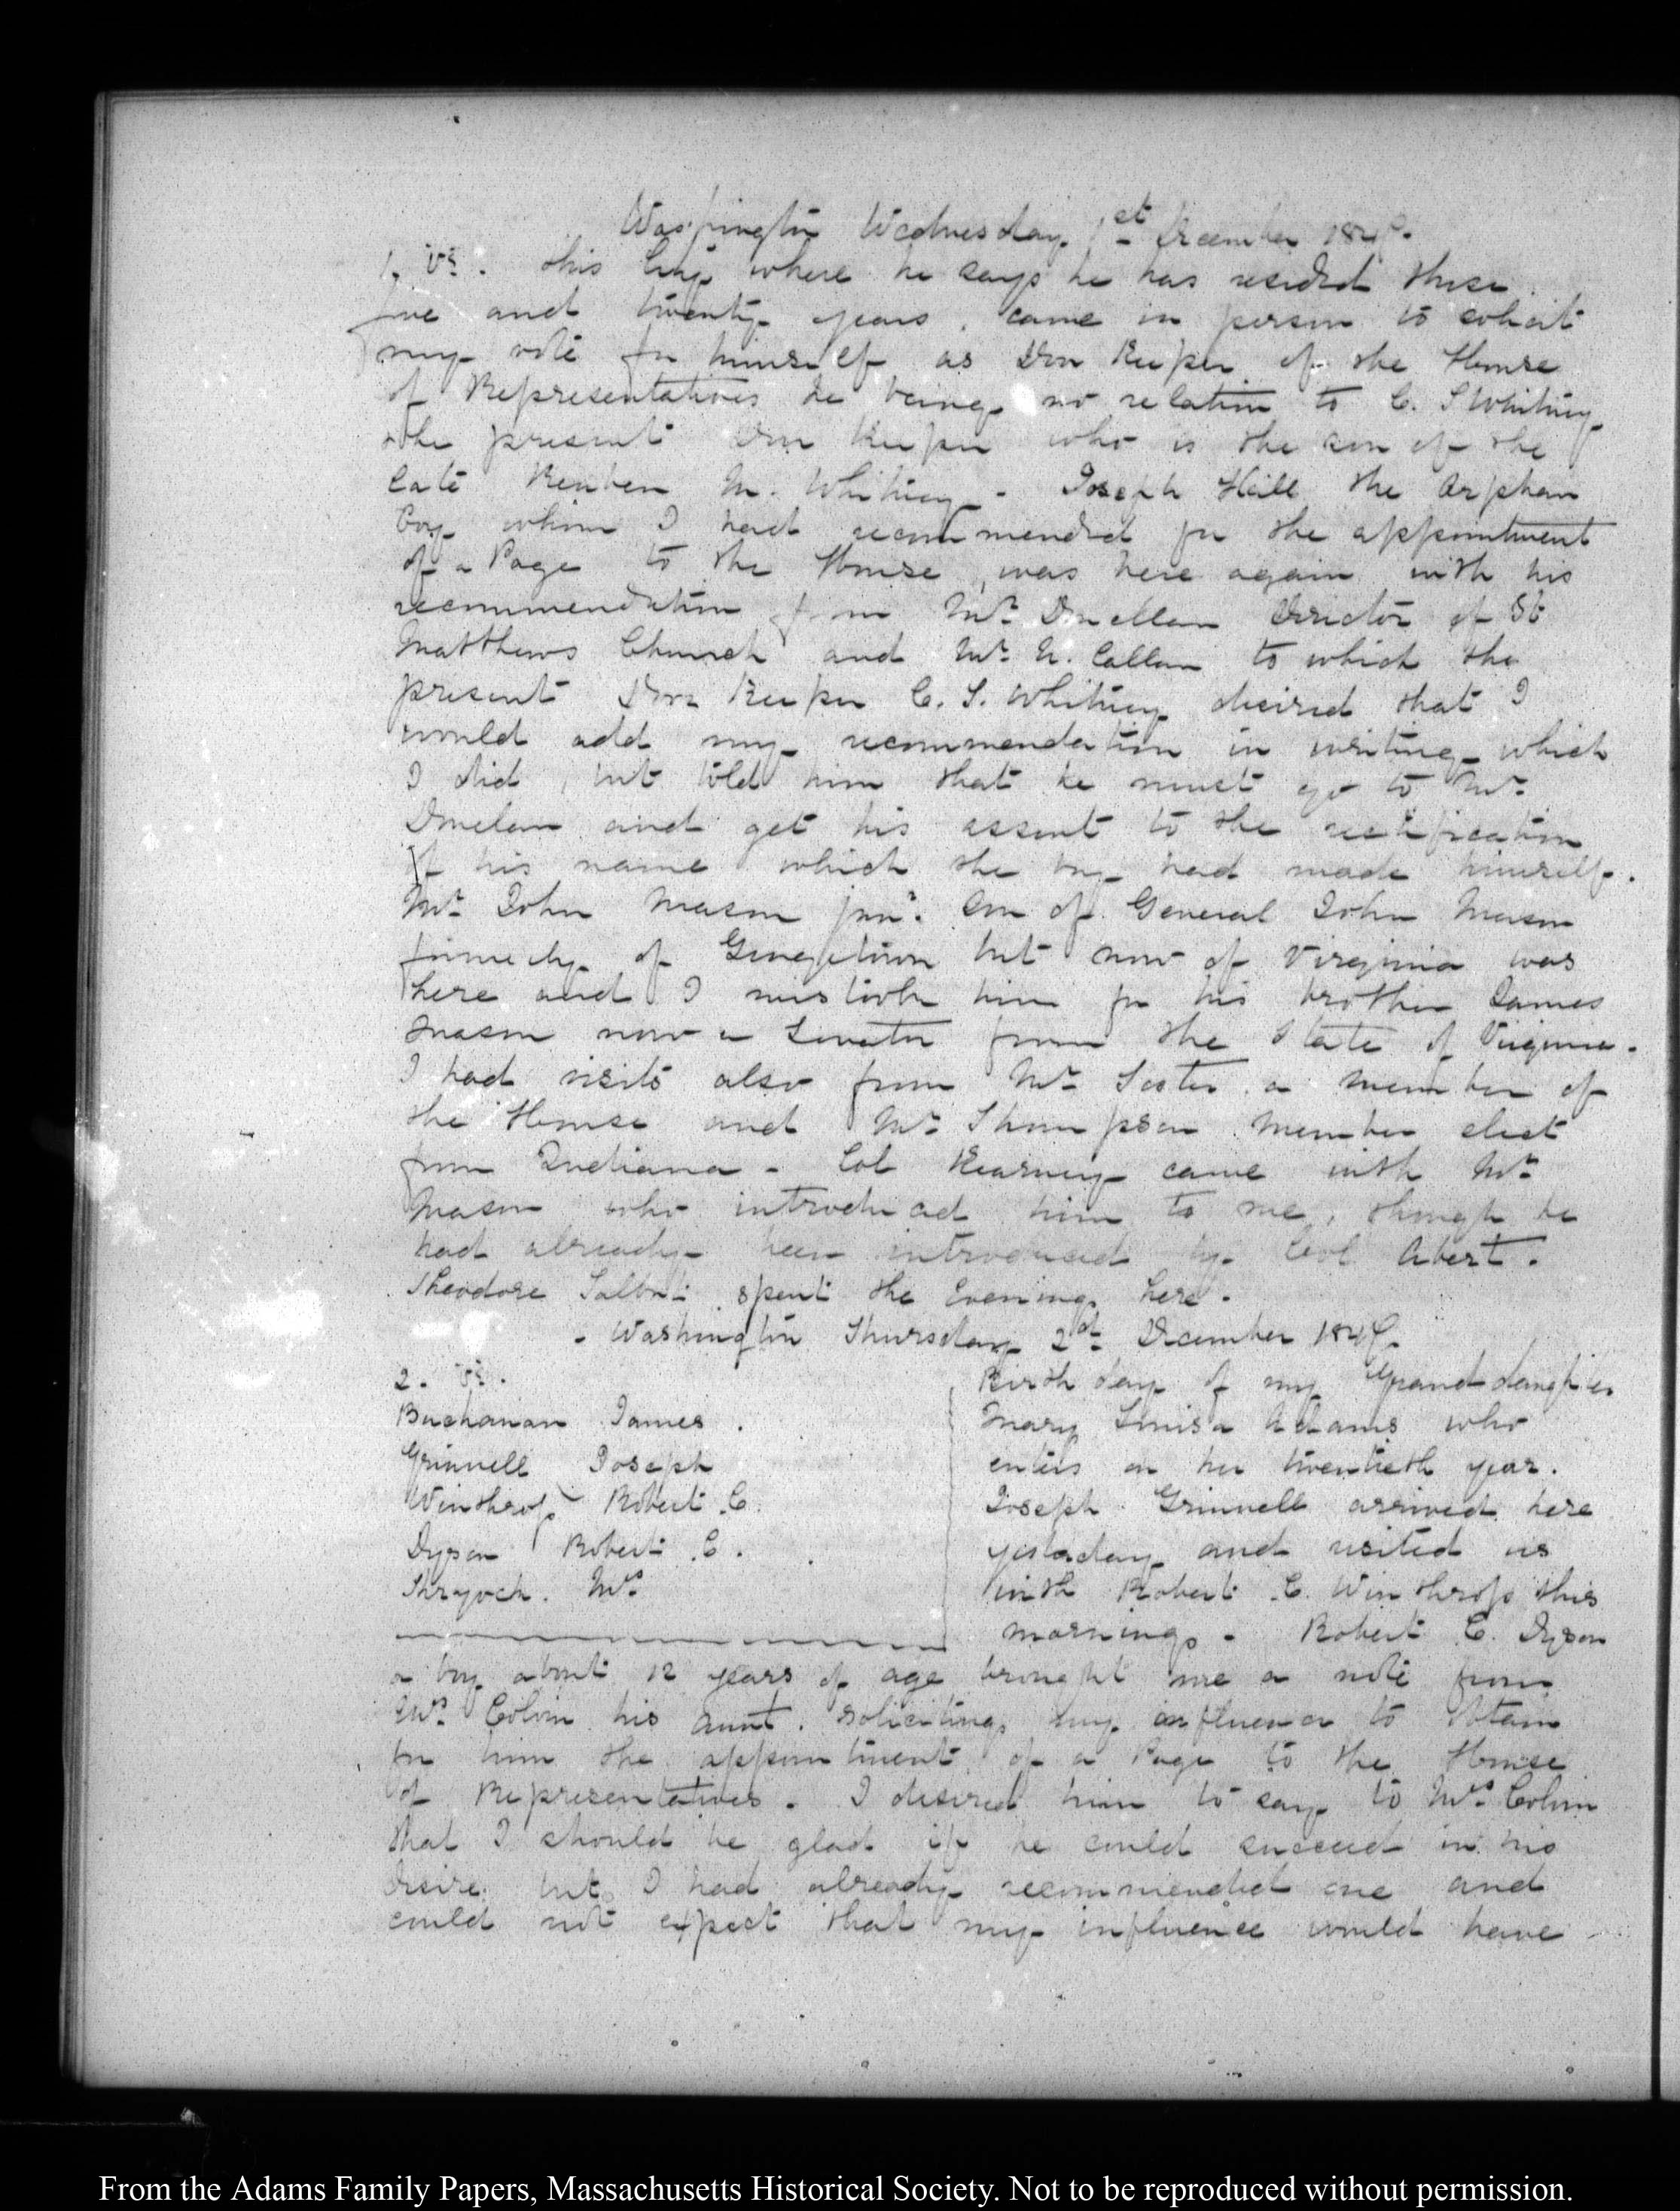 Washington Wednesday 1st December 1847.
1. VI. this City where he says he has resided these
five and twenty years, came in person to solicit
my vote for himself as Door Keeper of the House
of Representatives he being no relation to C. S Whitney
the present Door Keeper who is the son of the
late Reuben M. Whitney - Joseph Hill the Orphan
boy whom I had recommended for the appointment
of a Page to the House, was here again with his
recommendation from Mr Donellan Director of St
Matthews Church and Mr N. Callan to which the
present Door Keeper C. S. Whitney desired that I
would add my recommendation in writing which
I did, but told him that he must go to Mr
Donelan and get his assent to the rectification
of his name which the boy had made himself.
Mr John Mason junr. son of General John Mason
formerly of Georgetown but now of Virginia was
here and I mistook him for his brother James
Mason now a Senator from the State of Virginia.
I had visits also from Mr a member of
the House and Mr Thompson member elect
from Indiana - Col Kearney came with Mr
Mason who introduced him to me, though he
had already been introduced by Col Abert.
Theodore Talbot spent the Evening here.
- Washington Thursday 2d December 1847.
2. V.
Buchanan James.
Grinnell Joseph
Winthrop Robert C.
Dyson Robert C.
Shryock. Mrs
Birth day of my Grand daughter
Mary Louisa Adams who
enters on her twentieth year.
Joseph Grinnell arrived here
yesterday and visited us
with Robert C. Winthrop this
morning - Robert C. Dyson
a boy about 12 years of age brought me a note from
Mrs Colvin his aunt. soliciting my influence to obtain
for him the appointment of a Page to the House
of Representatives. I desired him to say to Mrs Colvin
that I should be glad if he could succeed in his
desire but I had already recommended one and
could not expect that my influence would have
From the Adams Family Papers, Massachusetts Historical Society. Not to be reproduced without permission.